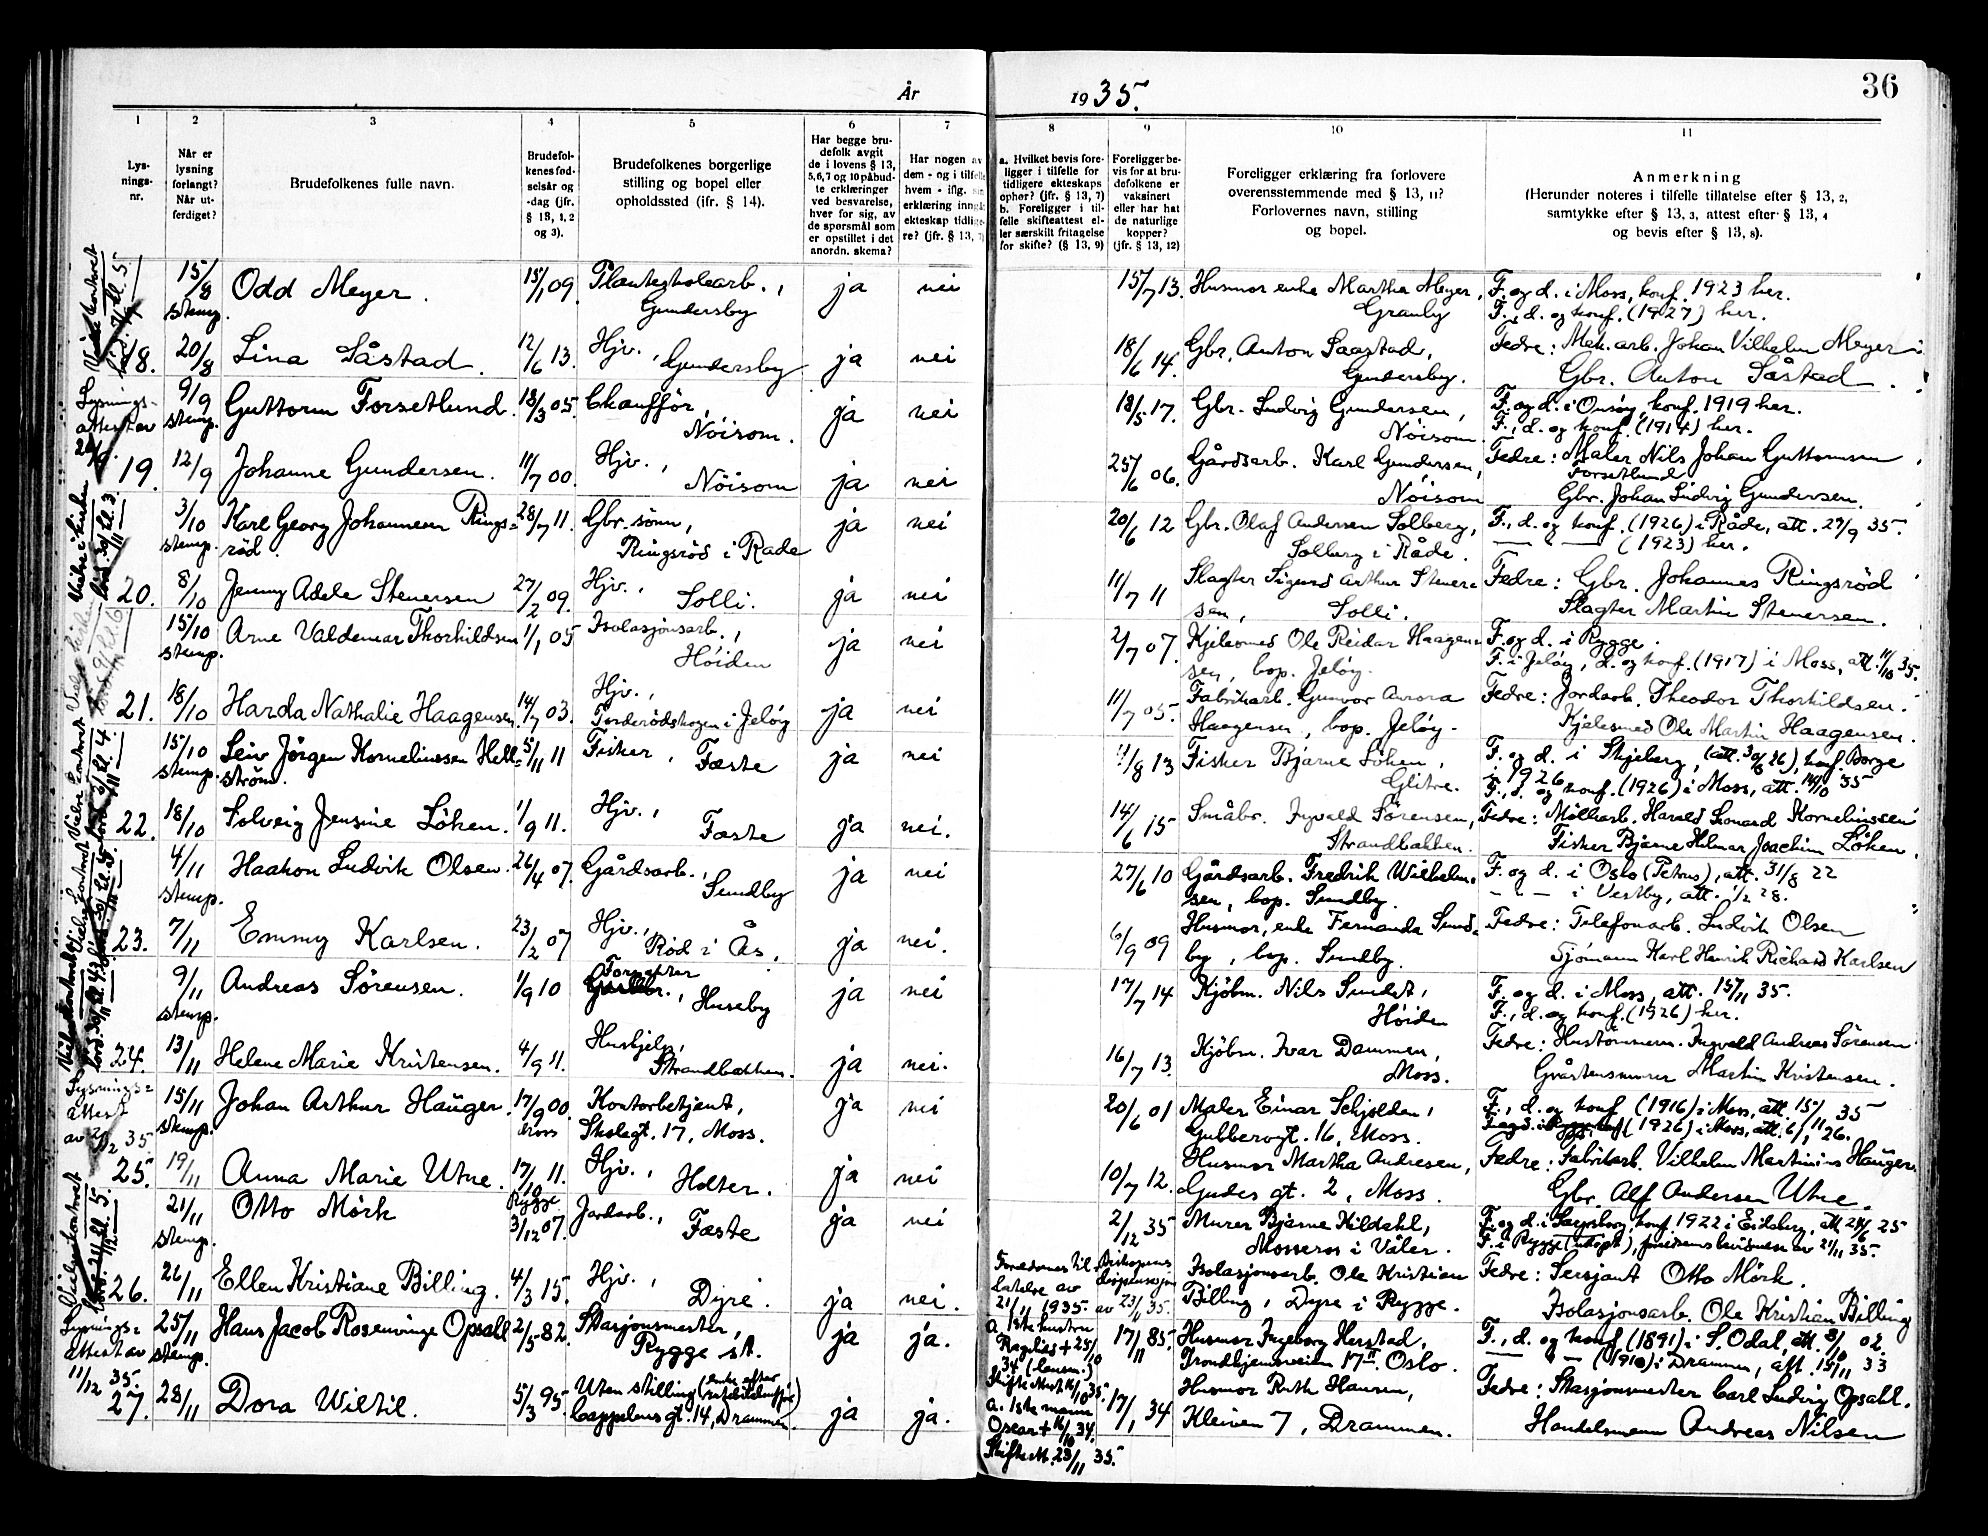 36
År 1935.
1 2 3 4 5 6 7 8 9 10 11
Lys-
nings-
nr.
Når er
lysning
forlangt?
Når ut-
ferdiget?
Brudefolkenes fulle navn.
Brudefol-
kenes fød-
selsår og
-dag (jfr.
§ 13, 1, 2
og 3).
Brudefolkenes borgerlige
stilling og bopel eller
opholdssted (ifr. § 14).
Har begge bru-
defolk avgit
de i lovens § 13,
5, 6, 7 og 10 påbud-
te erklæringer
ved besvarelse,
hver for sig, av
de spørsmål som
er opstillet i det
anordn. skema?
Har nogen av
dem - og i tilfelle
hvem - iflg.
erklæring inngå
ekteskap tidlige-
re? (jfr. § 13,
a. Hvilket bevis fore-
ligger i tilfelle for
tidligere ekteskaps
ophør? (jfr. § 13, 7)
b. Foreligger i til-
felle skifteattest el-
ler særskilt fritagelse
for skifte? (§ 13, 9)
Foreligger be-
vis for at bru-
defolkene er
vaksinert
eller har hat
de naturlige
kopper?
(jfr. § 13, 12)
Foreligger erklæring fra forlovere
overensstemmende med § 13, 11?
Forlovernes navn, stilling
og bopel.
Anmerkning
(Herunder noteres i tilfelle tillatelse efter § 13, 2,
samtykke efter § 13, 3, attest efter § 13, 4
og bevis efter § 13, 8).
15/8 stemp. Odd Meyer. 15/1 09. Planteskolearb., Gundersby ja nei 15/7 13. Husmor enke Martha Meyer, Granly F. og d. i Moss, konf. 1923 her.
F., d. og konf. (1927) her.
18. 20/8 Lina Såstad. 12/6 13. Hjv., Gundersby ja nei 18/6 14. Gbr. Anton Saastad, Gundersby. Fedre: Mek. arb. Johan Vilhelm Meyer
Gbr. Anton Såstad.
Lysnings-
attest av
9/9 stemp. Guttorm Forsetlund. 18/3 05. Chaufför, Nöisom. ja nei 18/5 17. Gbr. Ludvig Gundersen, Nöisom F. og d. i Onsøy, konf. 1919 her.
F., d. og konf. (1914) her.
19. 12/9 Johanne Gundersen. 11/7 00. Hjv., Nöisom ja nei 25/6 06. Gårdsarb. Karl Gundersen, Nöisom Fedre: Maler Nils Johan Guttormsen
Forsetlund
Gbr. Johan Ludvig Gundersen.
3/10 stemp. Karl Georg Johannesen Rings-
röd. 28/7 11. Gbr. sönn, Ringsröd i Råde ja nei 20/6 12 Gbr. Olaf Andersen Solberg, Solberg i Råde. F., d. og konf. (1926) i Råde, att. 27/9 35.
— " — (1923) her.
20. 8/10 Jenny Adele Stenersen 27/2 09. Hjv., Solli. ja nei 11/7 11 Slagter Sigurd Arthur Stener-
sen, Solli. Fedre: Gbr. Johannes Ringsröd
Slagter Martin Stenersen.
15/10 stemp. Arne Valdemar Thorkildsen 1/1 05 Isolasjonsarb., Höiden ja nei 2/7 07. Kjelesmed Ole Reidar Haagen-
sen, bop. Jelöy. F. og d. i Rygge.
F. i Jelöy, d. og konf. (1917) i Moss, att. 11/10 35.
21. 18/10 Harda Nathalie Haagensen. 14/7 03. Hjv., Torderödskogen i Jelöy ja nei 11/7 05. Fabrikarb. Gunvor Aurora
Haagensen, bop. Jelöy. Fedre: Jordarb. Theodor Thorkildsen.
Kjelesmed Ole Martin Haagensen.
15/10 stemp. Leiv Jörgen Korneliussen Hell-
ström. 5/11 11 Fisker, Fæste ja nei 11/8 13 Fisker Bjarne Löken, Glitre. F. og d. i Skjeberg, (att. 30/6 26), konf. Borge
i 1926
F., d. og konf. (1926) i Moss, att. 14/10 35
22. 18/10 Solveig Jensine Löken. 1/9 11. Hjv., Fæste ja nei. 14/6 15 Småbr. Ingvald Sörensen, Strandbakken. Fedre: Möllearb. Harald Leonard Korneliussen
Fisker Bjarne Helmer Joachim Löken.
4/11 stemp. Haakon Ludvik Olsen. 26/4 07. Gårdsarb., Sundby ja nei 27/6 10 Gårdsarb. Fredrik Wilhelm-
sen, bop. Sundby. F. og d. i Oslo (Petrus), att. 31/8 22
— " — i Vestby, att. 1/2 28.
23. 7/11 Emmy Karlsen. 23/2 07 Hjv., Röd i Ås, ja nei. 6/9 09 Husmor, enke Fernanda Sund-
by, bop. Sundby. Fedre: Telefonarb. Ludvik Olsen
Sjömann Karl Henrik Richard Karlsen
9/11 stemp. Andreas Sörensen. 1/9 10 Forpakter, Huseby ja nei 17/7 14 Kjöbm. Nils Sundet, Höiden F. og d. i Moss, att. 15/11 35.
F., d. og konf. (1926) her.
24. 13/11 Helene Marie Kristensen. 4/9 11. Hushjelp, Strandbakken. ja nei. 16/7 13. Kjöbm. Ivar Dammen, Moss. Fedre: Hustömmerm. Ingvald Andreas Sörensen
Gråstensmurer Martin Kristensen.
Lysnings-
attest
av 2/12 35.
15/11 stemp. Johan Arthur Hauger. 17/9 00. Moss Kontorbetjent,
Skolegt. 17, Moss. ja nei 20/6 01 Maler Einar Schjolden,
Gubberogt. 16, Moss. F., d. og konf. (1916) i Moss, att. 15/11 35
(1926) i Moss, att. 6/1 26.
25. 19/11 Anna Marie Utne. 17/10 11. Rygge Hjv., Holter. ja nei 10/7 12. Husmor Martha Andresen,
Gudes gt. 2, Moss. Fedre: Fabrikarb. Vilhelm Martinius Hauger.
Gbr. Alf Andersen Utne.
21/11 stemp. Otto Mörk 3/12 07. Jordarb., Fæste ja nei 2/12 35 Murer Bjarne Kildahl,
Mosseros i Våler. F. og d. i Sarpsborg, konf. 1922 i Eidsberg, att. 24/6 25
F. i Rygge (udöpt), 21/11 35.
26. 26/11 Ellen Kristiane Billing. 4/3 15. Hjv., Dyre. ja nei. Foreldrenes til-
latelse av
21/11 1935. Biskopens
dispensasjon
av 23/11 35. Isolasjonsarb. Ole Kristian
Billing, Dyre i Rygge. Fedre: Sersjant Otto Mörk.
Isolasjonsarb. Ole Kristian Billing
Lysnings-
attest av
11/12 35.
25/11 stemp. Hans Jacob Rosenvinge Opsahl 2/5 82. Stasjonsmester,
Rygge st. ja ja. a. 1ste hustru
Ragna + 25/10
34
Skifteattest 16/10 35. 17/11 85. Husmor Ingeborg Herstad,
Trondhjemsveien 17 II. Oslo. F., d. og konf. (1891) i S. Odal, att. 8/10 02.
— " — (1910) i Drammen, att. 15/11 33
27. 28/11 Dora Wiltil. 5/3 95. Uten stilling (enke efter
Cappelens gt. 14, Drammen) ja ja. a. 1ste mann
Oscar + 16/10 34.
Skifteatt. 23/11 35. 17/1 34 Husmor Ruth Hansen,
Kleiven 7, Drammen. Fedre: Stasjonsmester Carl Ludvig Opsahl.
Handelsmann Andreas Nilsen